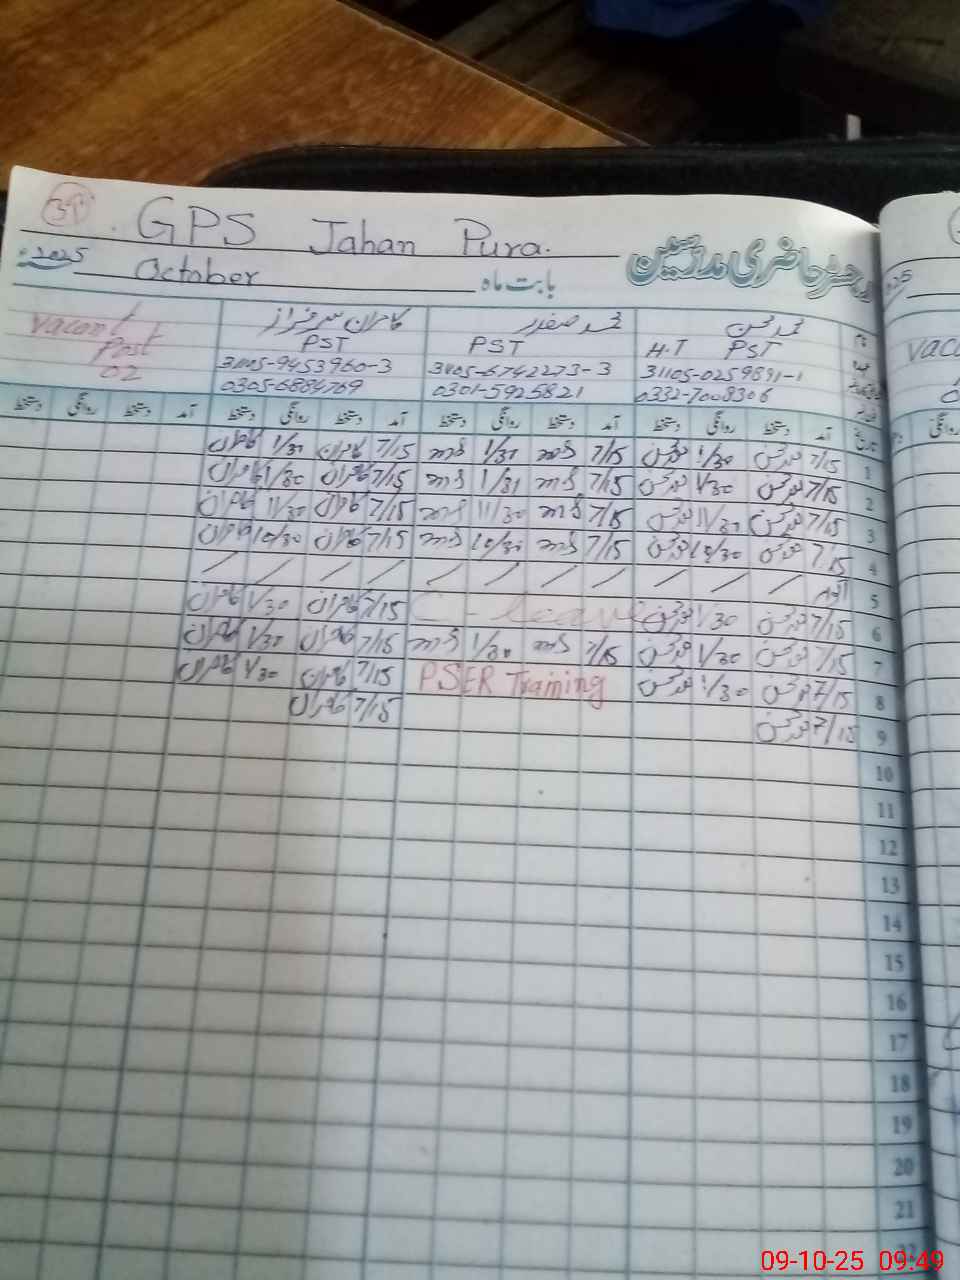 GPS Jahan Pura.
رجسٹر حاضری مدرسین
2025ء October بابت ماہ
نام محمد محسن محمد صفدر کامران سرفراز Vacant
عہدہ H.T PST PST PST Post
31105-0259891-1 31105-6742273-3 31105-9453960-3 02
0332-7008306 0301-5925821 0305-6884769
تاریخ آمد دستخط روانگی دستخط آمد دستخط روانگی دستخط آمد دستخط روانگی دستخط آمد دستخط روانگی دستخط
1 7/15 محسن 1/30 محسن 7/15 1/30 7/15 کامران 1/30 کامران
2 7/15 محسن 1/30 محسن 7/15 1/31 7/15 کامران 1/30 کامران
3 7/15 محسن 11/30 محسن 7/15 11/30 7/15 کامران 11/30 کامران
4 7/15 محسن 10/30 محسن 7/15 10/30 7/15 کامران 10/30 کامران
5 اتوار / / / / / / / / / / /
6 7/15 محسن 1/30 محسن C-leave 7/15 کامران 1/30 کامران
7 7/15 محسن 1/30 محسن 7/15 1/30 7/15 کامران 1/30 کامران
8 7/15 محسن 1/30 محسن PSER Training 7/15 کامران 1/30 کامران
9 7/15 محسن 7/15 کامران
10
11
12
13
14
15
16
17
18
19
20
21
22
09-10-25 09:49